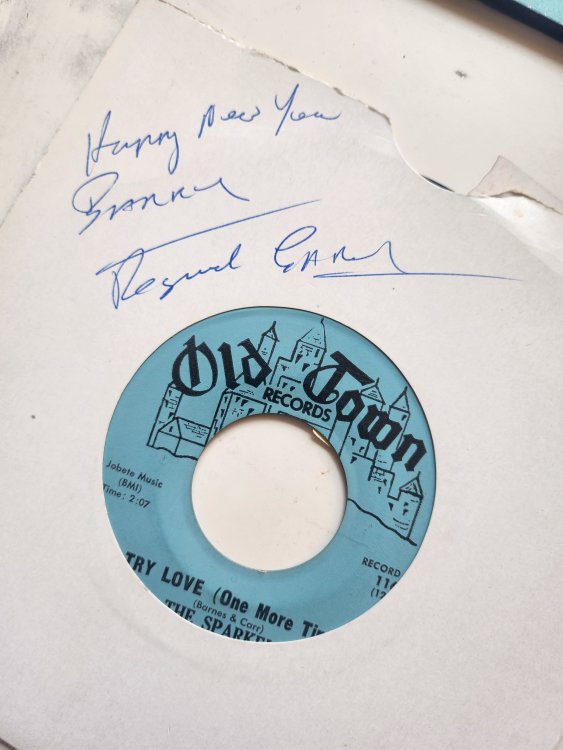 Happy New Year
Barry
Old Town
RECORDS
Jobete Music
(BMI)
Time: 2:07
RECORD
TRY LOVE (One More Ti
(Barnes & Carr)
THE SPARKE